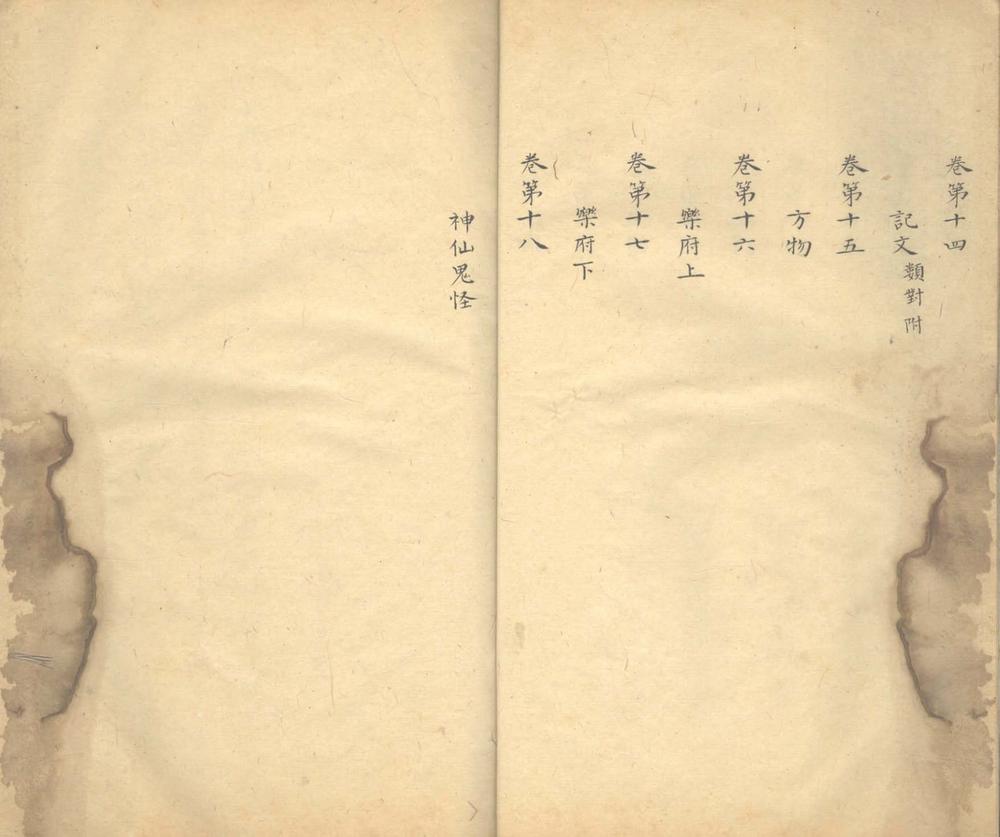 卷第十四
記文類對附
卷第十五
方物
卷第十六
樂府上
卷第十七
樂府下
卷第十八
神仙鬼怪